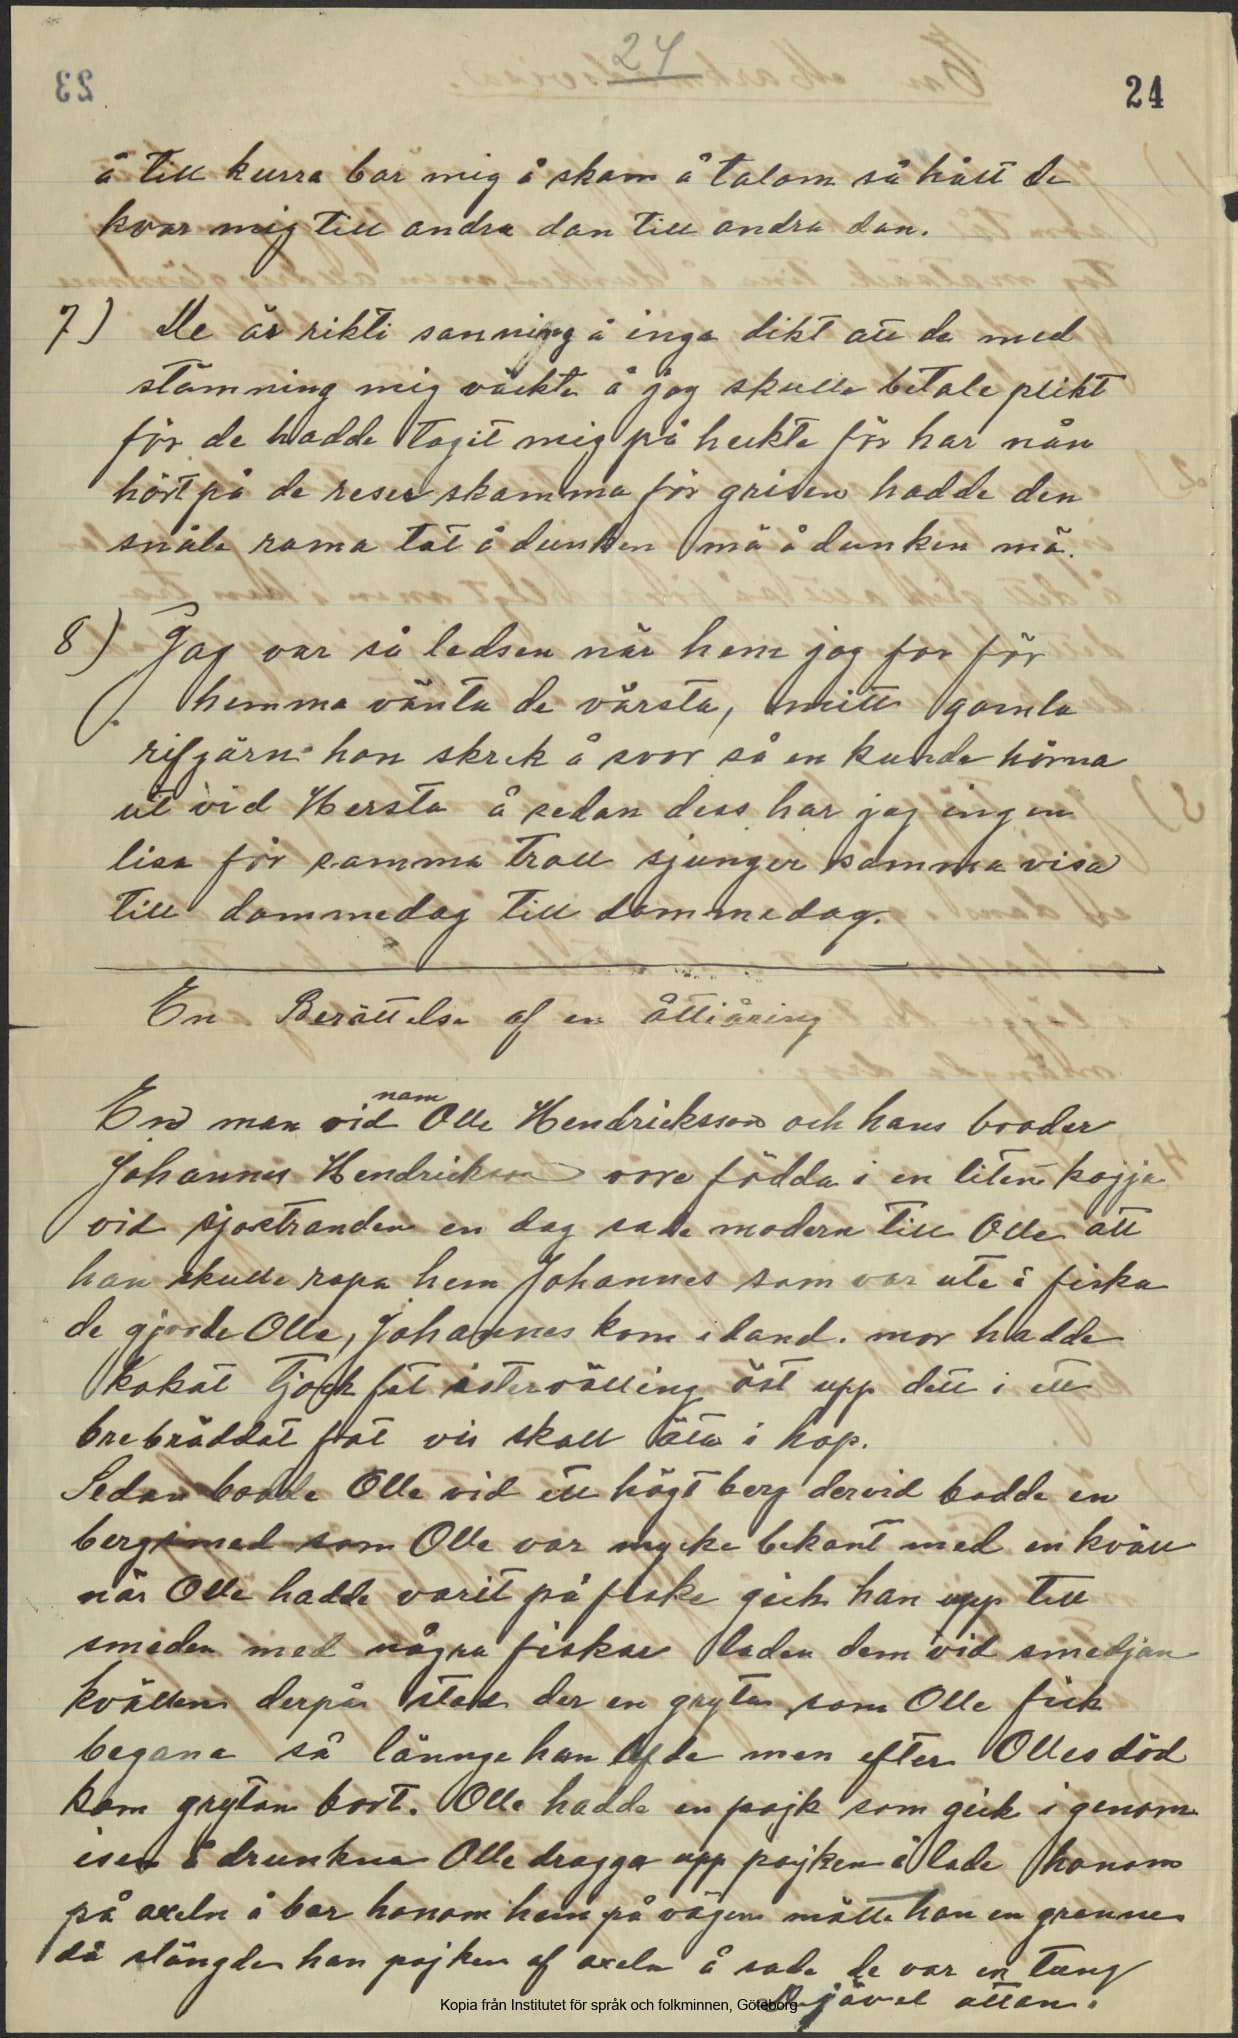 24
24
å till kurra bar mig å skam å talom så hått de
kvar mig till andra dan till andra dan.
7) De är rikti sanning å inga dikt att de med
stämning mig väckte å jag skulle betale plikt
för de hadde tagit mig på heckte för har nån
hört på de reser skamma för grisen hadde den
snåla rama tat å dunken mä å dunken mä.
8) Jag var så ledsen när hem jag for för
hemma vänta de värsta, mitt gamla
rifjärn hon skrek å svor så en kunde hörna
ut vid Hersta å sedan dess har jag ingen
lisa för samma troll sjunger samma visa
till dommedag till dommedag.
En Berättelse af en åttiåring
En man vid namn Olle Hendricksson och hans broder
Johannes Hendrickson vore födda i en liten kojja
vid sjostranden en dag sade modern till Olle att
han skulle ropa hem Johannes som var ute å fiska
de gjorde Olle, Johannes kom i land. mor hadde
kokat tjock fet istervälling öst upp dett i ett
brebräddat fat vis skall äta i hop.
Sedan bodde Olle vid ett högt berg dervid bodde en
bergsmed som Olle var mycke bekant med en kväll
när Olle hadde varit på fiske gick han upp till
smeden med några fiskar laden dem vid smedjan
kvällen derpå stod der en gryta som Olle fick
begana så lännge han lefde men efter Olles död
kom grytan bort. Olle hadde en pojk som gick i genom
isen å drunkna Olle dragga upp pojken å lade honom
på axeln å bar honom hem på vägen mötte han en granne
då slängde han pojken af axeln å sade de var en tung
djävel attan.
Kopia från Institutet för språk och folkminnen, Göteborg